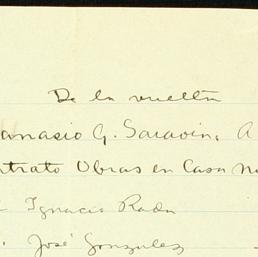 De la vuelta
anasio G. Saravia. A
ntrato Obras en Casa No
Ignacio Rada
José Gonzalez